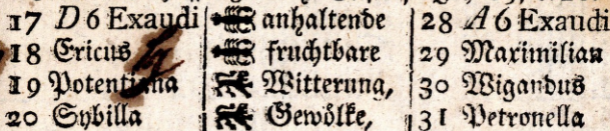 17 D 6 Exaudi anhaltende 28 A 6 Exaudi
18 Ericus fruchtbare 29 Maximilian
19 Potentiana Witterung, 30 Wigandus
20 Sybilla Gewölke, 31 Petronella